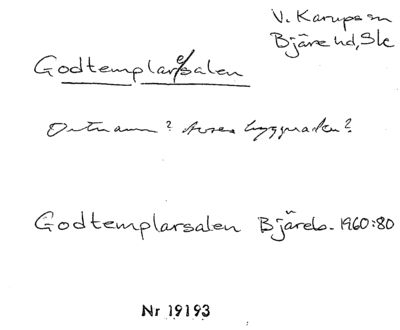 V. Karups sn
Bjäre hd, Sk
Godtemplare/salen
Ortnamn? Anses byggnaden?
Godtemplarsalen Bjäreb. 1960:80
Nr 19193